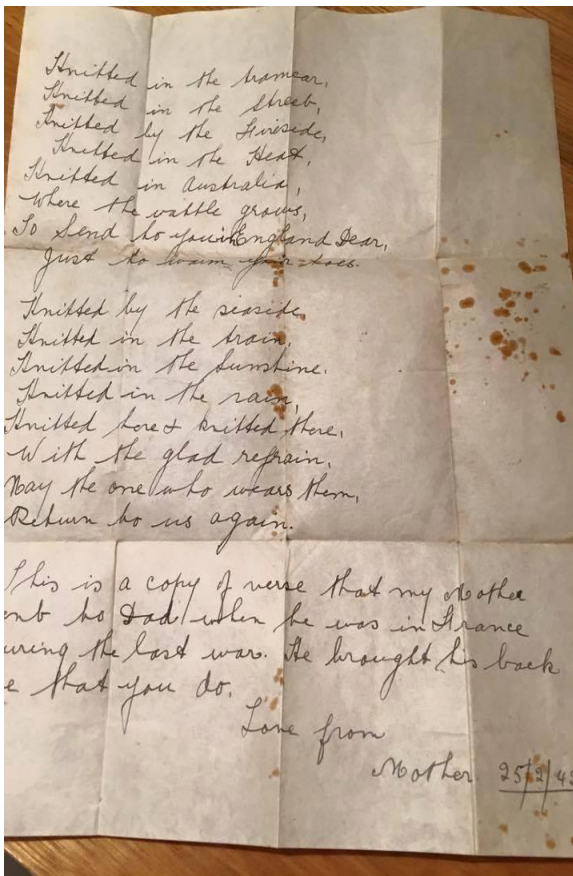 Knitted in the tramcar,
Knitted in the Street,
Knitted by the Fireside,
Knitted in the Heat,
Knitted in Australia,
Where the wattle grows,
To Send to you in England Dear,
Just to warm your toes.
Knitted by the seaside,
Knitted in the train,
Knitted in the Sunshine.
Knitted in the rain,
Knitted here & knitted there,
With the glad refrain,
May the one who wears them,
Return to us again.
This is a copy of verse that my Mother
ent to Dad when he was in France
uring the last war. He brought his back
e that you do.
Love from
Mother. 25/2/43